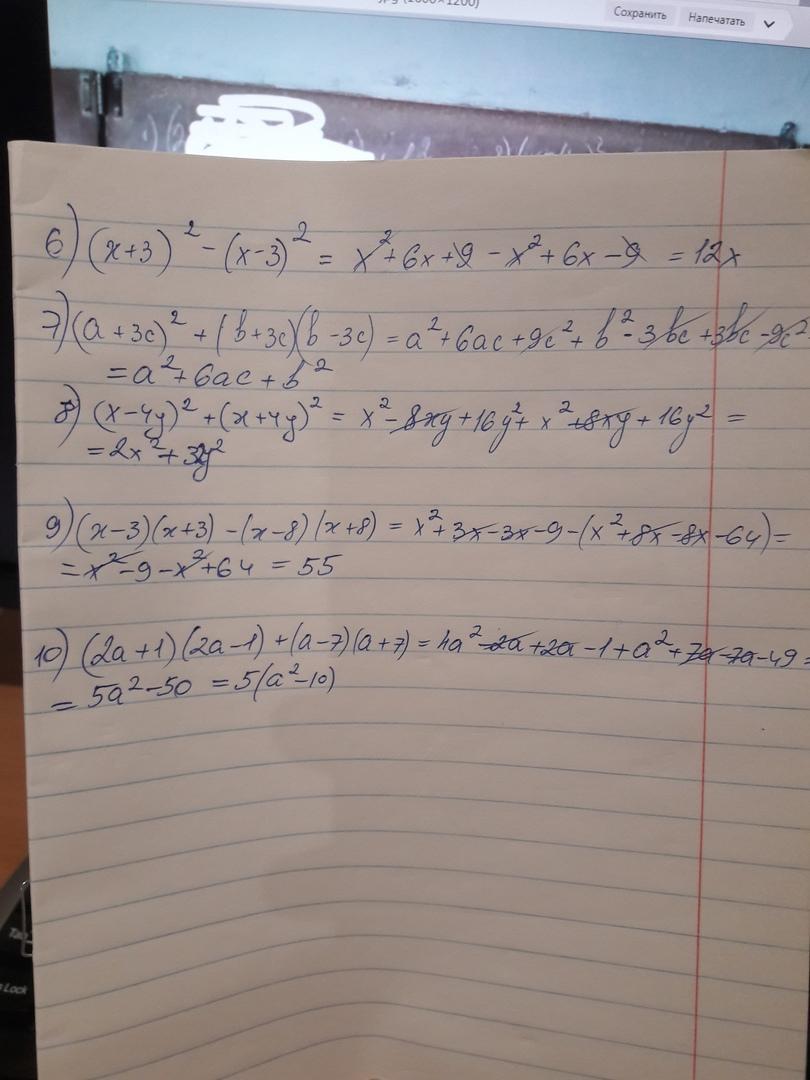 Сохранить Напечатать
6) (x+3)² - (x-3)² = x² + 6x + 9 - x² + 6x - 9 = 12x
7) (a + 3c)² + (b+3c)(b - 3c) = a² + 6ac + 9c² + b² - 3bc + 3bc - 9c²
= a² + 6ac + b²
8) (x-4y)² + (x+4y)² = x² - 8xy + 16y² + x² + 8xy + 16y² =
= 2x² + 32y²
9) (x-3)(x+3) - (x-8)(x+8) = x² + 3x - 3x - 9 - (x² + 8x - 8x - 64) =
= x² - 9 - x² + 64 = 55
10) (2a+1)(2a-1) + (a-7)(a+7) = 4a² - 2a + 2a - 1 + a² + 7a - 7a - 49 =
= 5a² - 50 = 5(a² - 10)
Tab
Lock